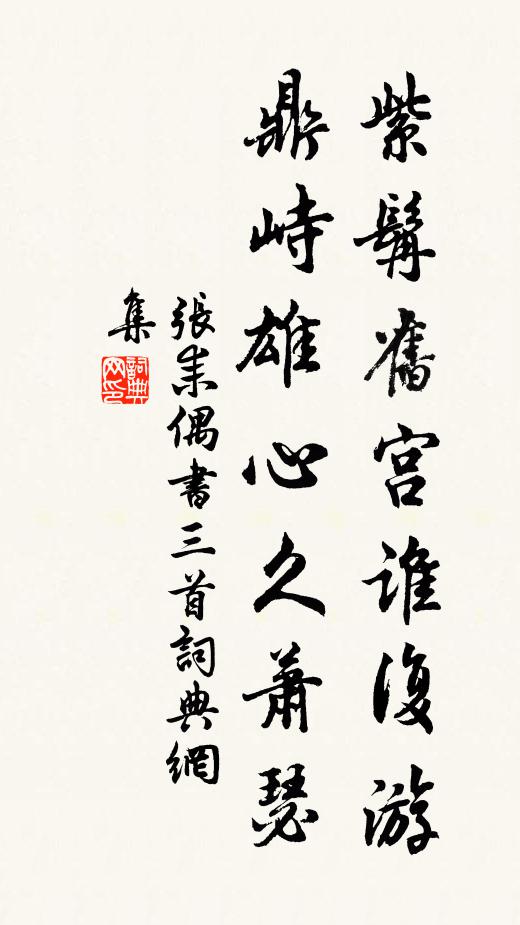 紫髯舊宮誰復游
鼎峙雄心久蕭瑟
張耒偶書三首詞典網
集
詞典網印